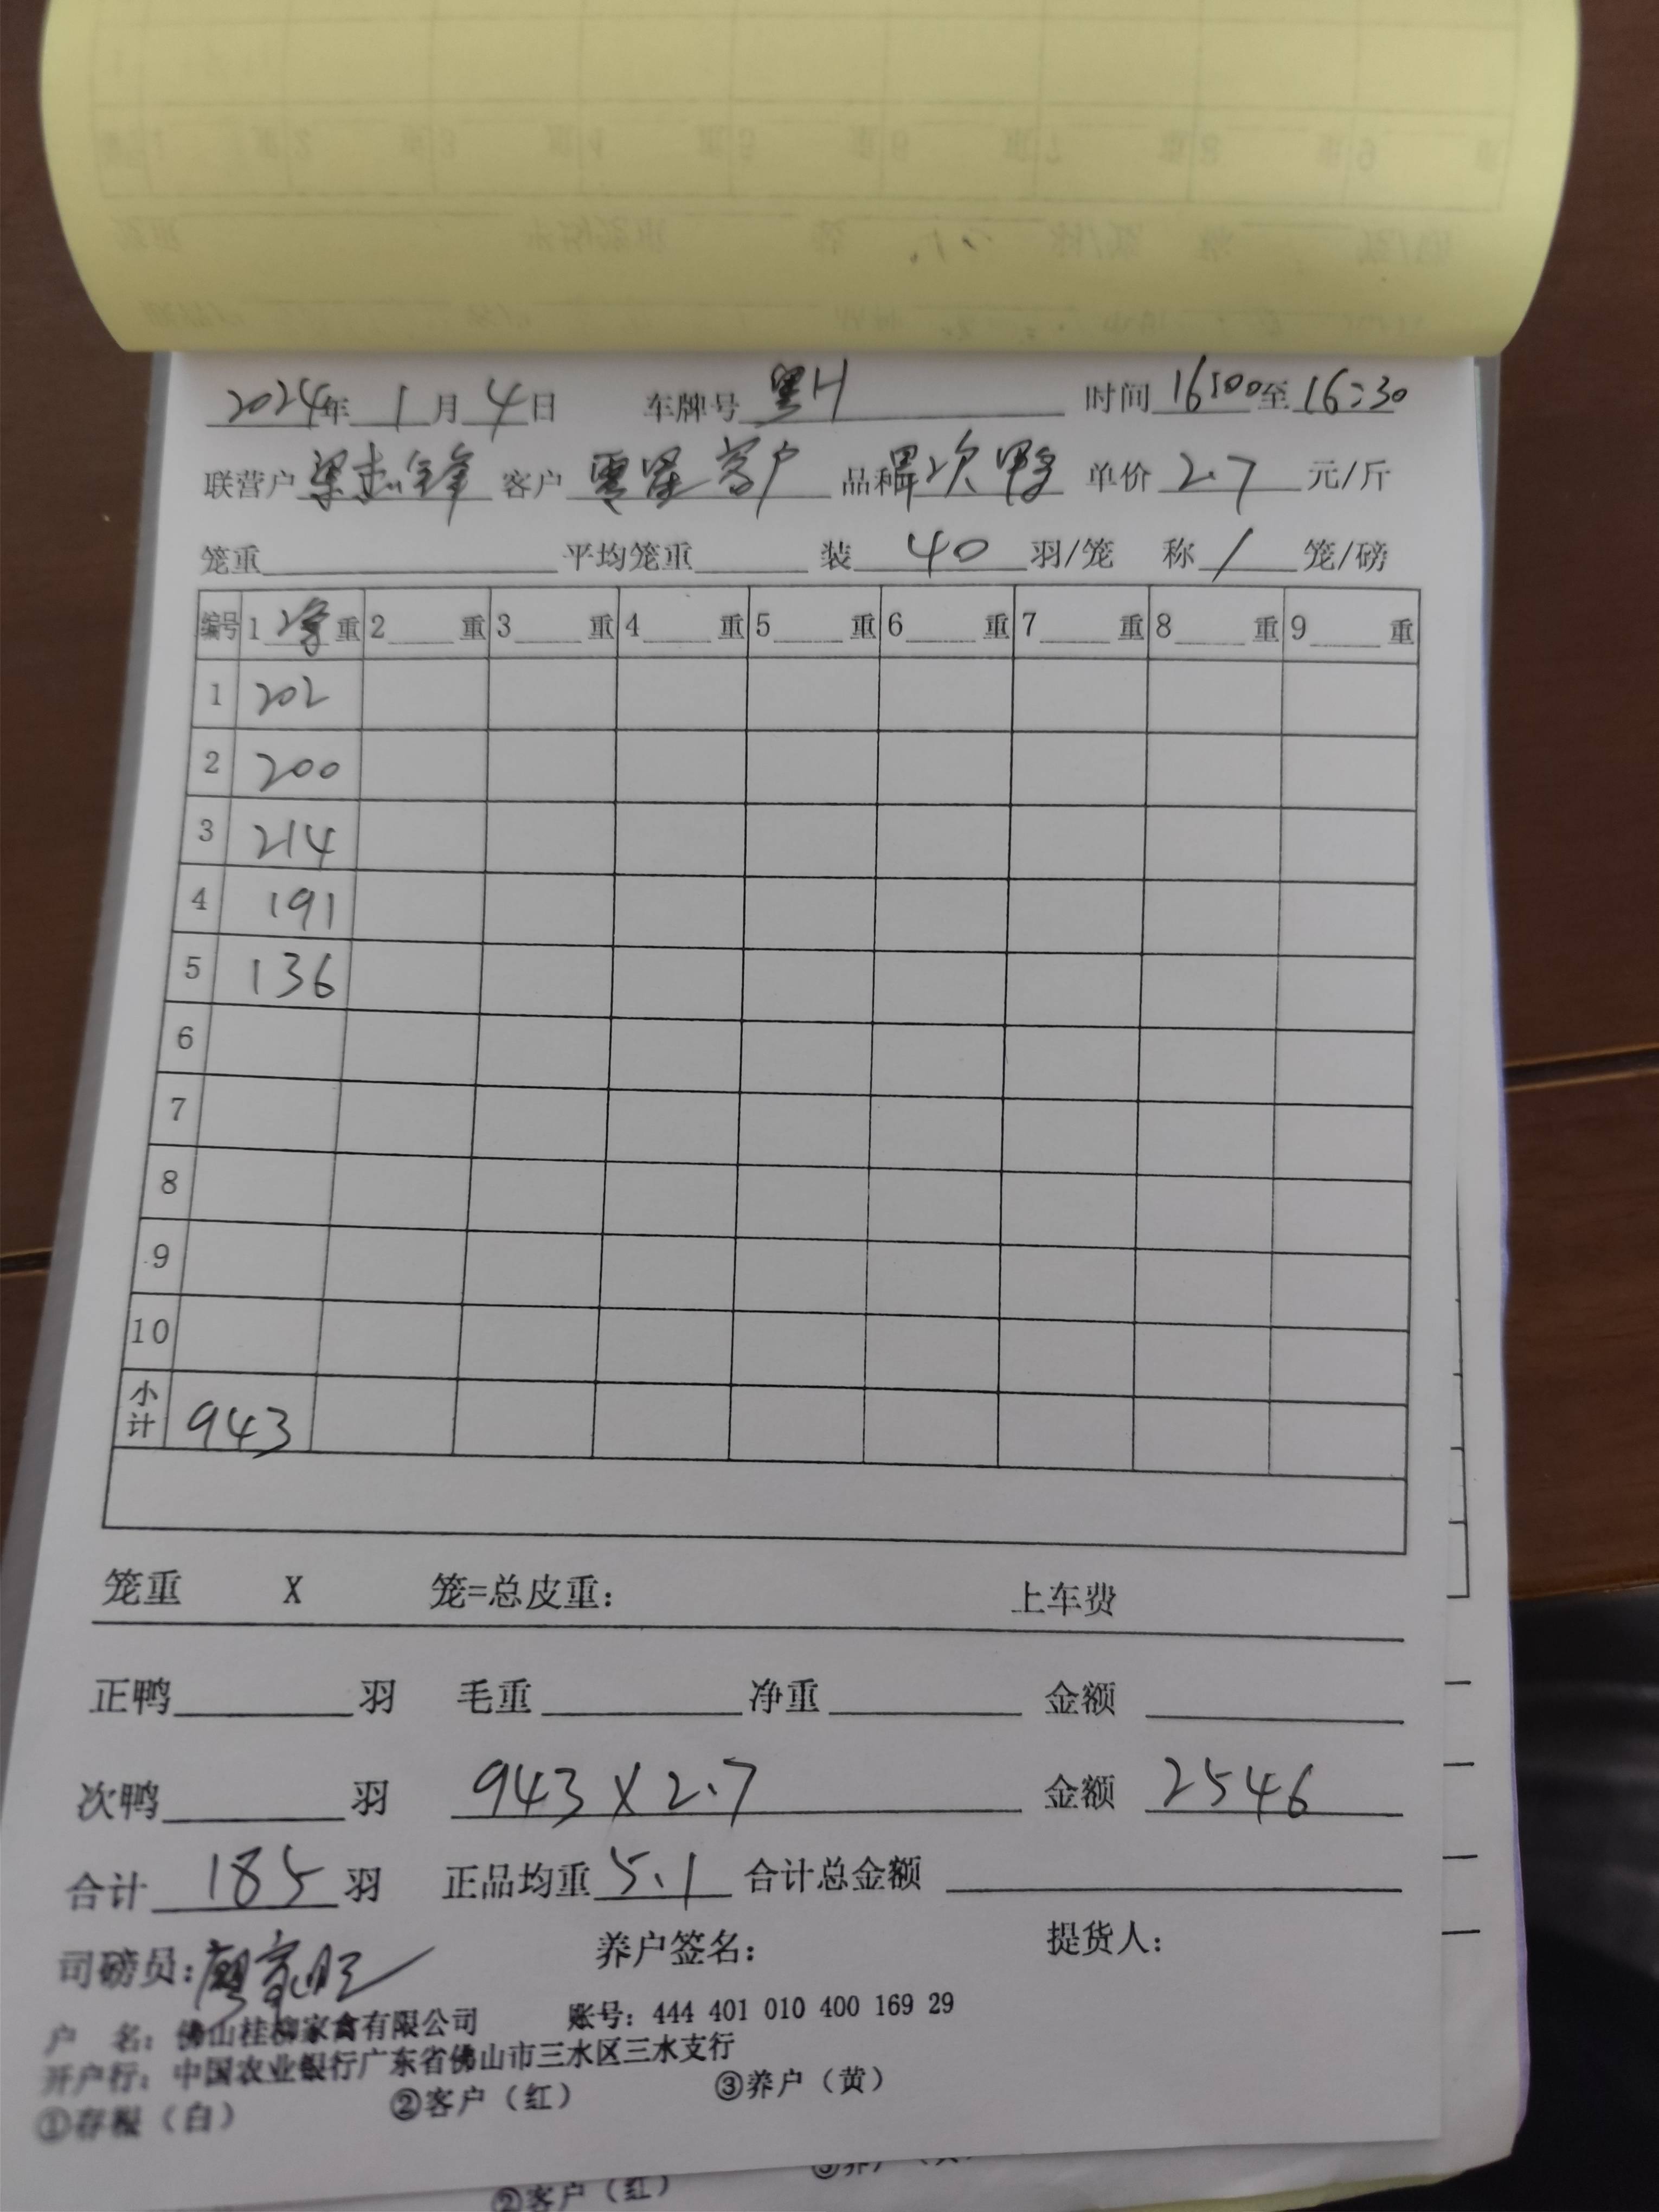 2024年 1 月 4 日 车牌号 粤H 时间 16:00 至 16:30
联营户 梁志锋 客户 零星客户 品种 次鸭 单价 2.7 元/斤
笼重 平均笼重 装 40 羽/笼 称 / 笼/磅
编号 1 净 重 2 重 3 重 4 重 5 重 6 重 7 重 8 重 9 重
1 202
2 200
3 214
4 191
5 136
6
7
8
9
10
小计 943
笼重 X 笼=总皮重: 上车费
正鸭 羽 毛重 净重 金额
次鸭 羽 943 X 2.7 金额 2546
合计 185 羽 正品均重 5.1 合计总金额
司磅员: 养户签名: 提货人:
户 名: 佛山桂柳家禽有限公司 账号: 444 401 010 400 169 29
开户行: 中国农业银行广东省佛山市三水区三水支行
①存根（白） ②客户（红） ③养户（黄）
②客户（红）